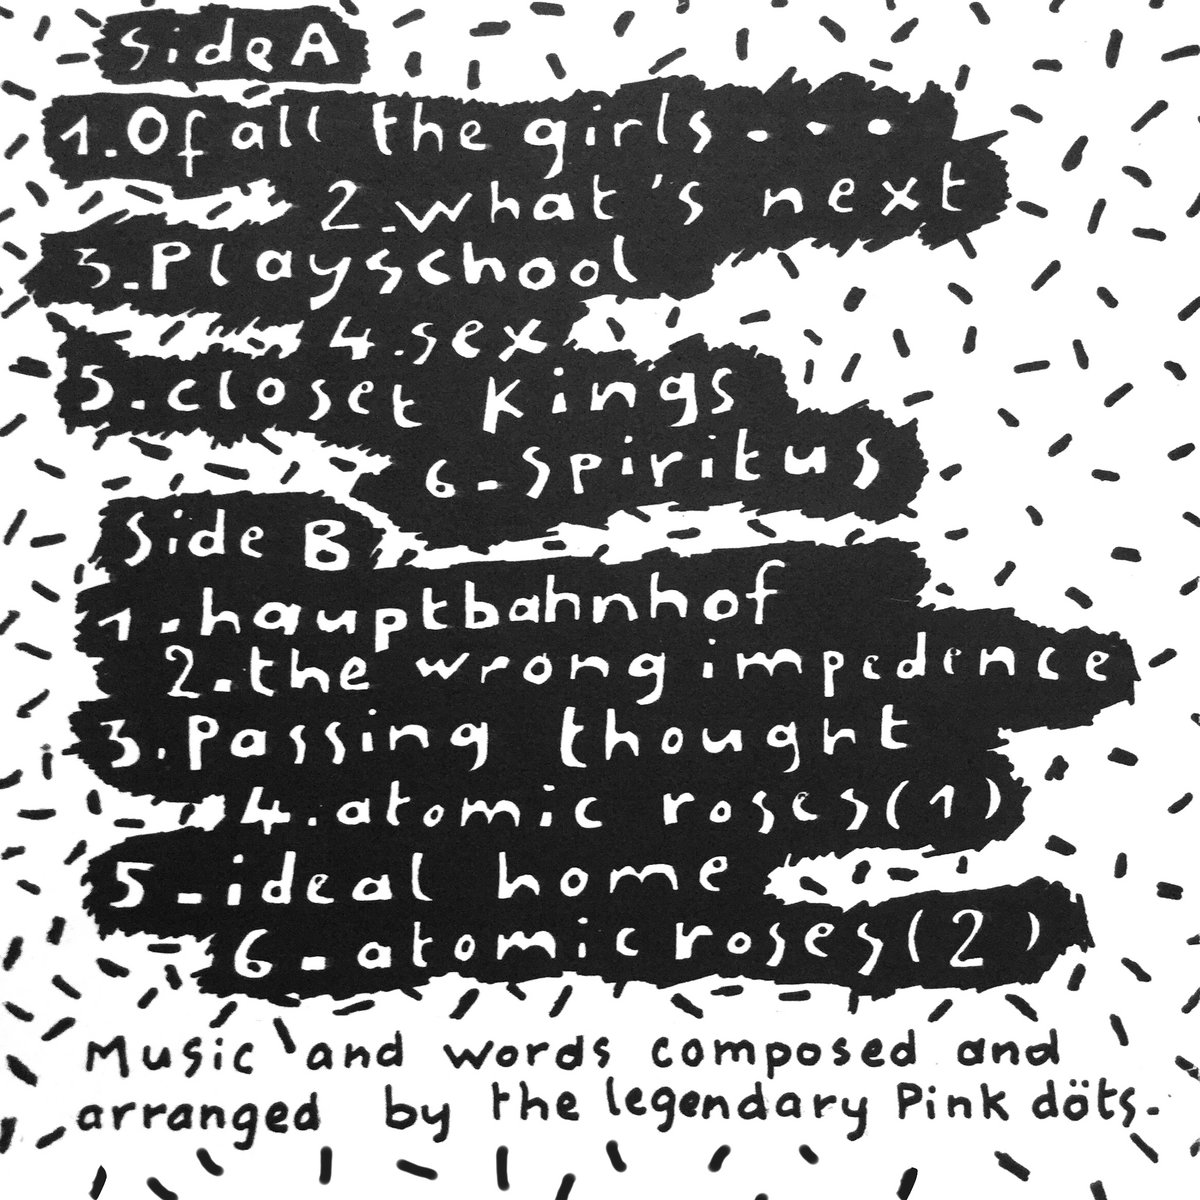 Side A
1. Of all the girls...
2. what's next
3. Playschool
4. sex
5. closet Kings
6. Spiritus
Side B
1. hauptbahnhof
2. the wrong impedence
3. Passing thought
4. atomic roses (1)
5. ideal home
6. atomic roses (2)
Music and words composed and
arranged by the legendary Pink döts.